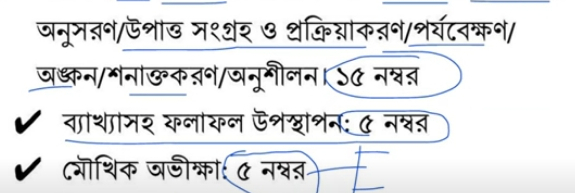 অনুসরণ/উপাত্ত সংগ্রহ ও প্রক্রিয়াকরণ/পর্যবেক্ষণ/
অঙ্কন/শনাক্তকরণ/অনুশীলন। ১৫ নম্বর
✔ ব্যাখ্যাসহ ফলাফল উপস্থাপন: ৫ নম্বর
✔ মৌখিক অভীক্ষা: ৫ নম্বর